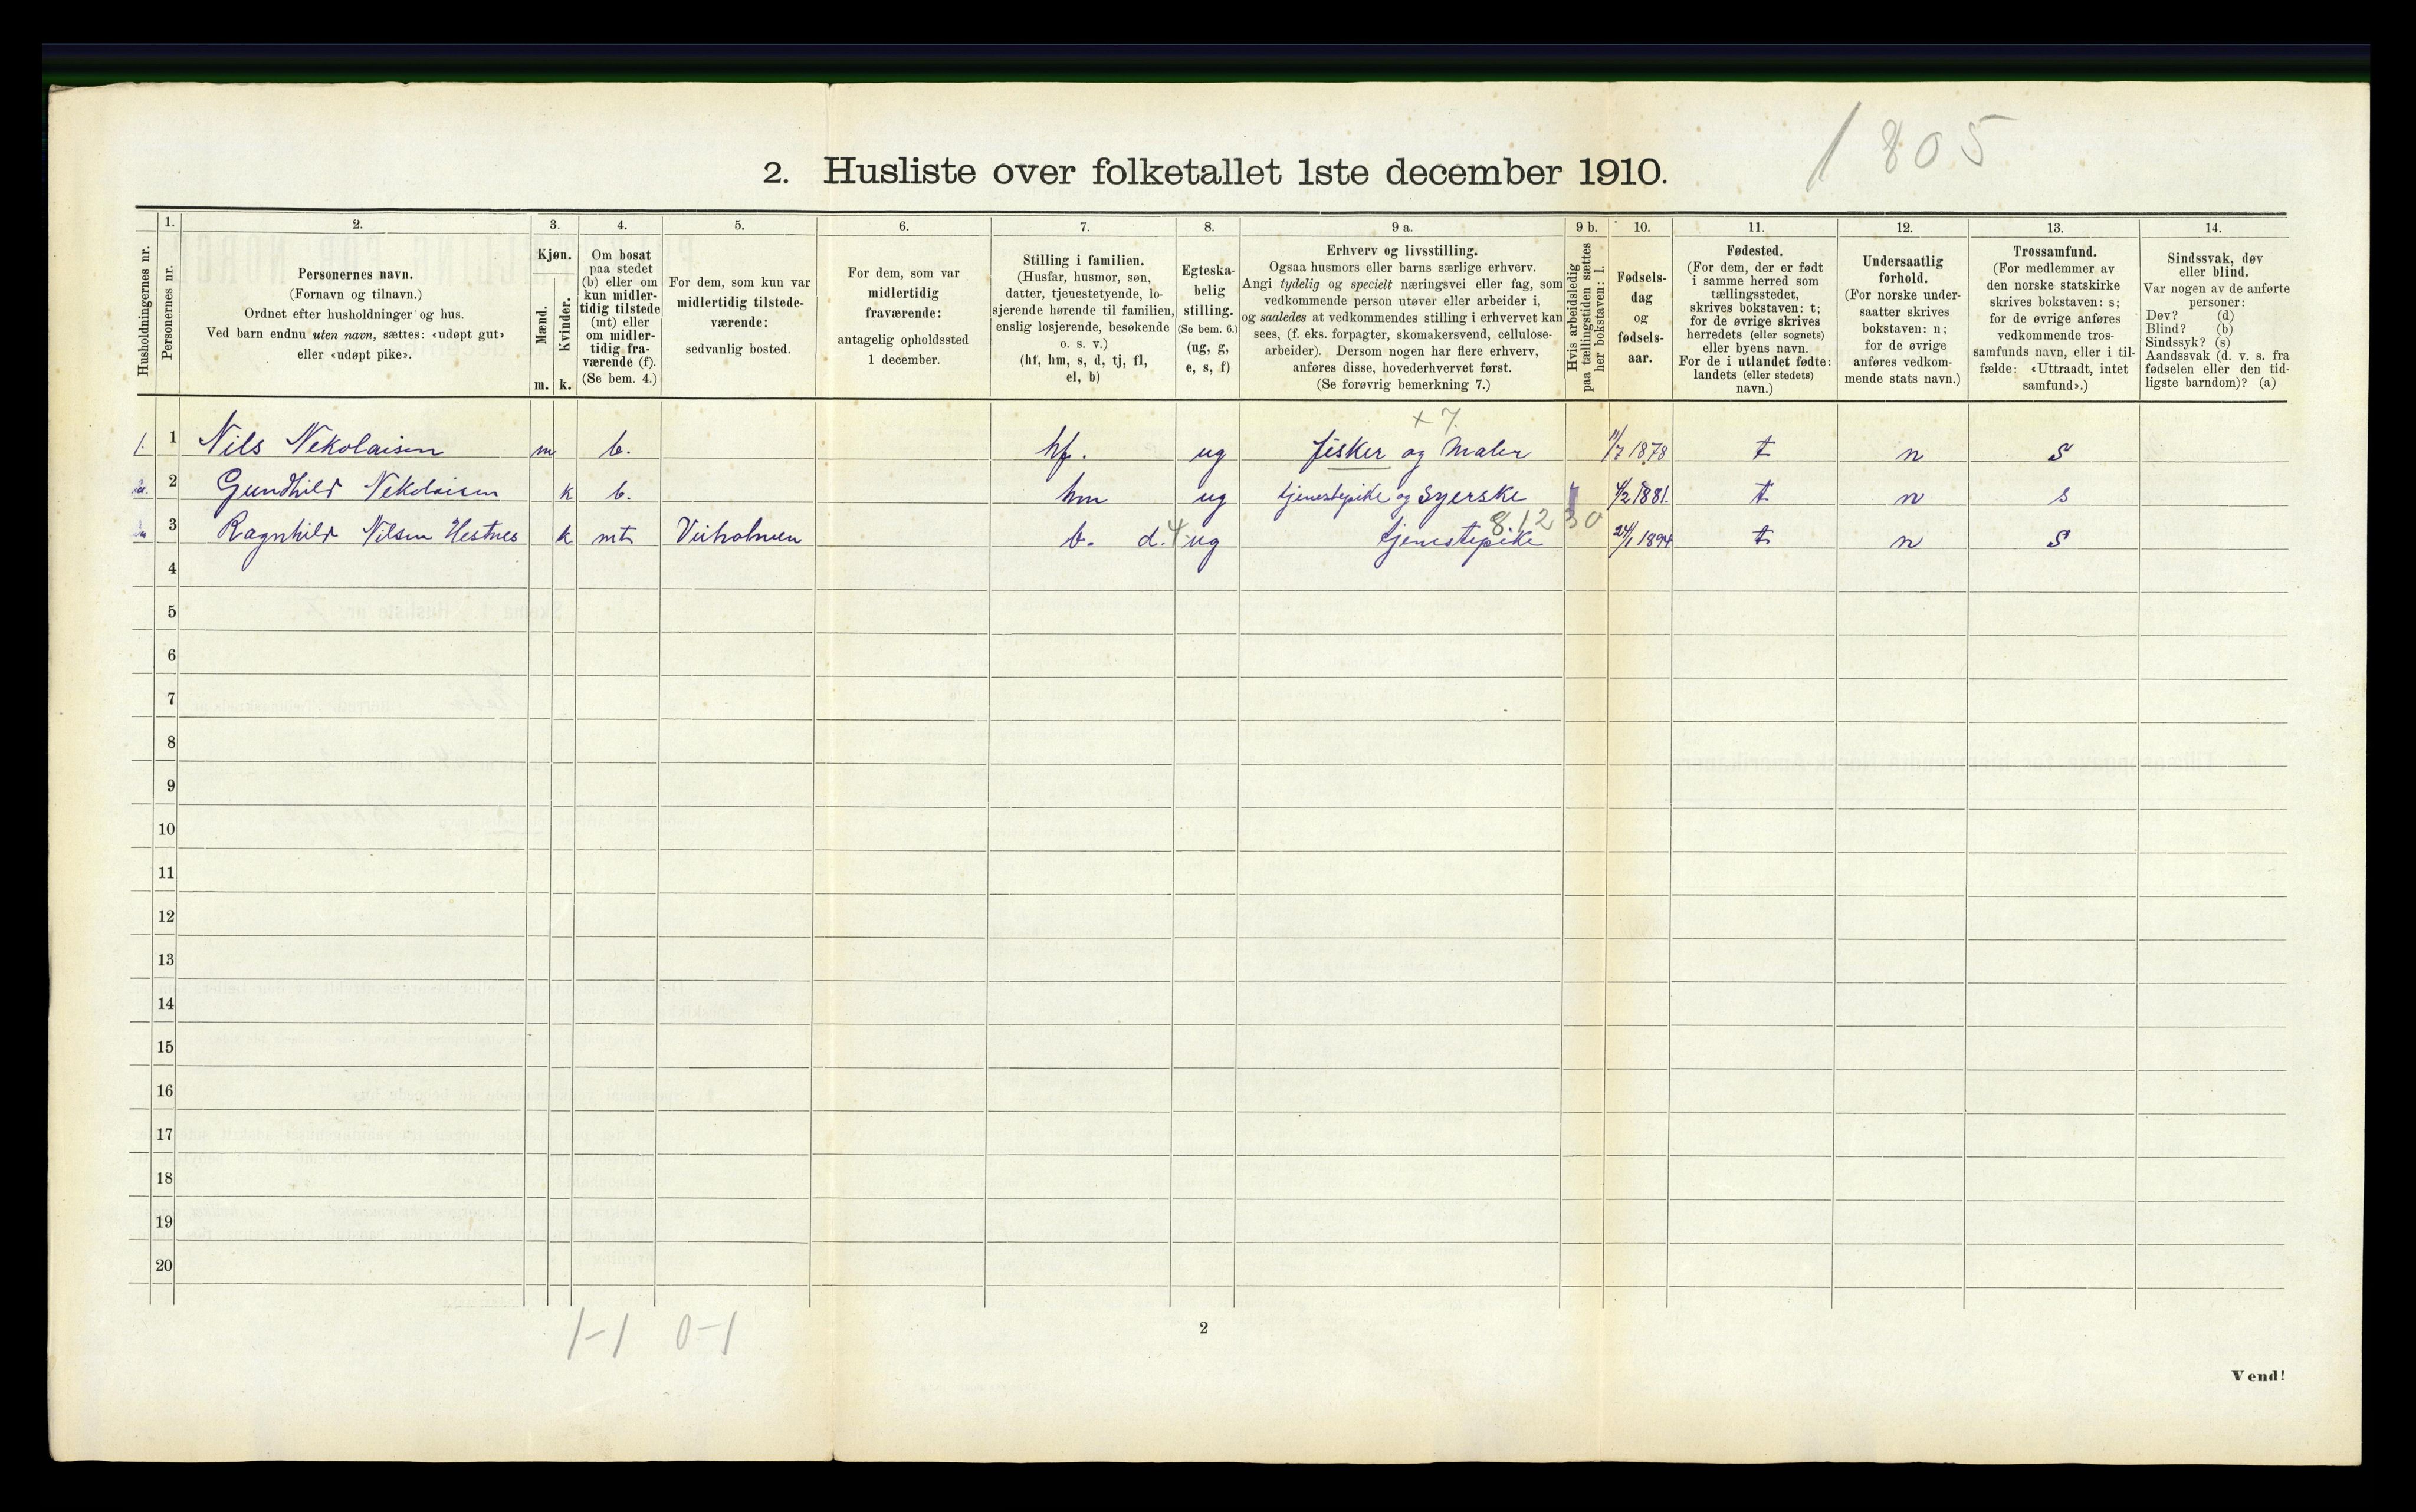 1805
2. Husliste over folketallet 1ste december 1910.
Husholdningernes nr.
1.
Personernes nr.
2.
Personernes navn.
(Fornavn og tilnavn.)
Ordnet efter husholdninger og hus.
Ved barn endnu uten navn, sættes: «udøpt gut»
eller «udøpt pike».
3.
Kjøn.
Mænd.
Kvinder.
m. k.
4.
Om bosat
paa stedet
(b) eller om
kun midler-
tidig tilstede
(mt) eller
om midler-
tidig fra-
værende (f).
(Se bem. 4.)
5.
For dem, som kun var
midlertidig tilstede-
værende:
sedvanlig bosted.
6.
For dem, som var
midlertidig
fraværende:
antagelig opholdssted
1 december.
7.
Stilling i familien.
(Husfar, husmor, søn,
datter, tjenestetyende, lo-
sjerende hørende til familien,
enslig losjerende, besøkende
o. s. v.)
(hf, hm, s, d, tj, fl,
el, b)
8.
Egteska-
belig
stilling.
(Se bem. 6.)
(ug, g,
e, s, f)
9 a.
Erhverv og livsstilling.
Ogsaa husmors eller barns særlige erhverv.
Angi tydelig og specielt næringsvei eller fag, som
vedkommende person utøver eller arbeider i,
og saaledes at vedkommendes stilling i erhvervet kan
sees, (f. eks. forpagter, skomakersvend, cellulose-
arbeider). Dersom nogen har flere erhverv,
anføres disse, hovederhvervet først.
(Se forøvrig bemerkning 7.)
9 b.
Hvis arbeidsledig
paa tællingstiden sættes
her bokstaven: l.
10.
Fødsels-
dag
og
fødsels-
aar.
11.
Fødested.
(For dem, der er født
i samme herred som
tællingsstedet,
skrives bokstaven: t;
for de øvrige skrives
herredets (eller sognets)
eller byens navn.
For de i utlandet fødte:
landets (eller stedets)
navn.)
12.
Undersaatlig
forhold.
(For norske under-
saatter skrives
bokstaven: n;
for de øvrige
anføres vedkom-
mende stats navn.)
13.
Trossamfund.
(For medlemmer av
den norske statskirke
skrives bokstaven: s;
for de øvrige anføres
vedkommende tros-
samfunds navn, eller i til-
fælde: «Uttraadt, intet
samfund».)
14.
Sindssvak, døv
eller blind.
Var nogen av de anførte
personer:
Døv? (d)
Blind? (b)
Sindssyk? (s)
Aandssvak (d. v. s. fra
fødselen eller den tid-
ligste barndom)? (a)
+ 7.
1. 1 Nils Nekolaisen m b. hf. ug fisker og Maler 11/7 1878 t n s
2 Gundhild Nekolaisen k b. hm ug tjenestepike og Syerske 4/2 1881. t n s
8.12 30
3 Ragnhild Nilsen Hestnes k mt b. d. 4 ug tjenestepike 24/1 1894 t n s
4
5
6
7
8
9
10
11
12
13
14
15
16
17
18
19
20
1-1 0-1
2
Vend!